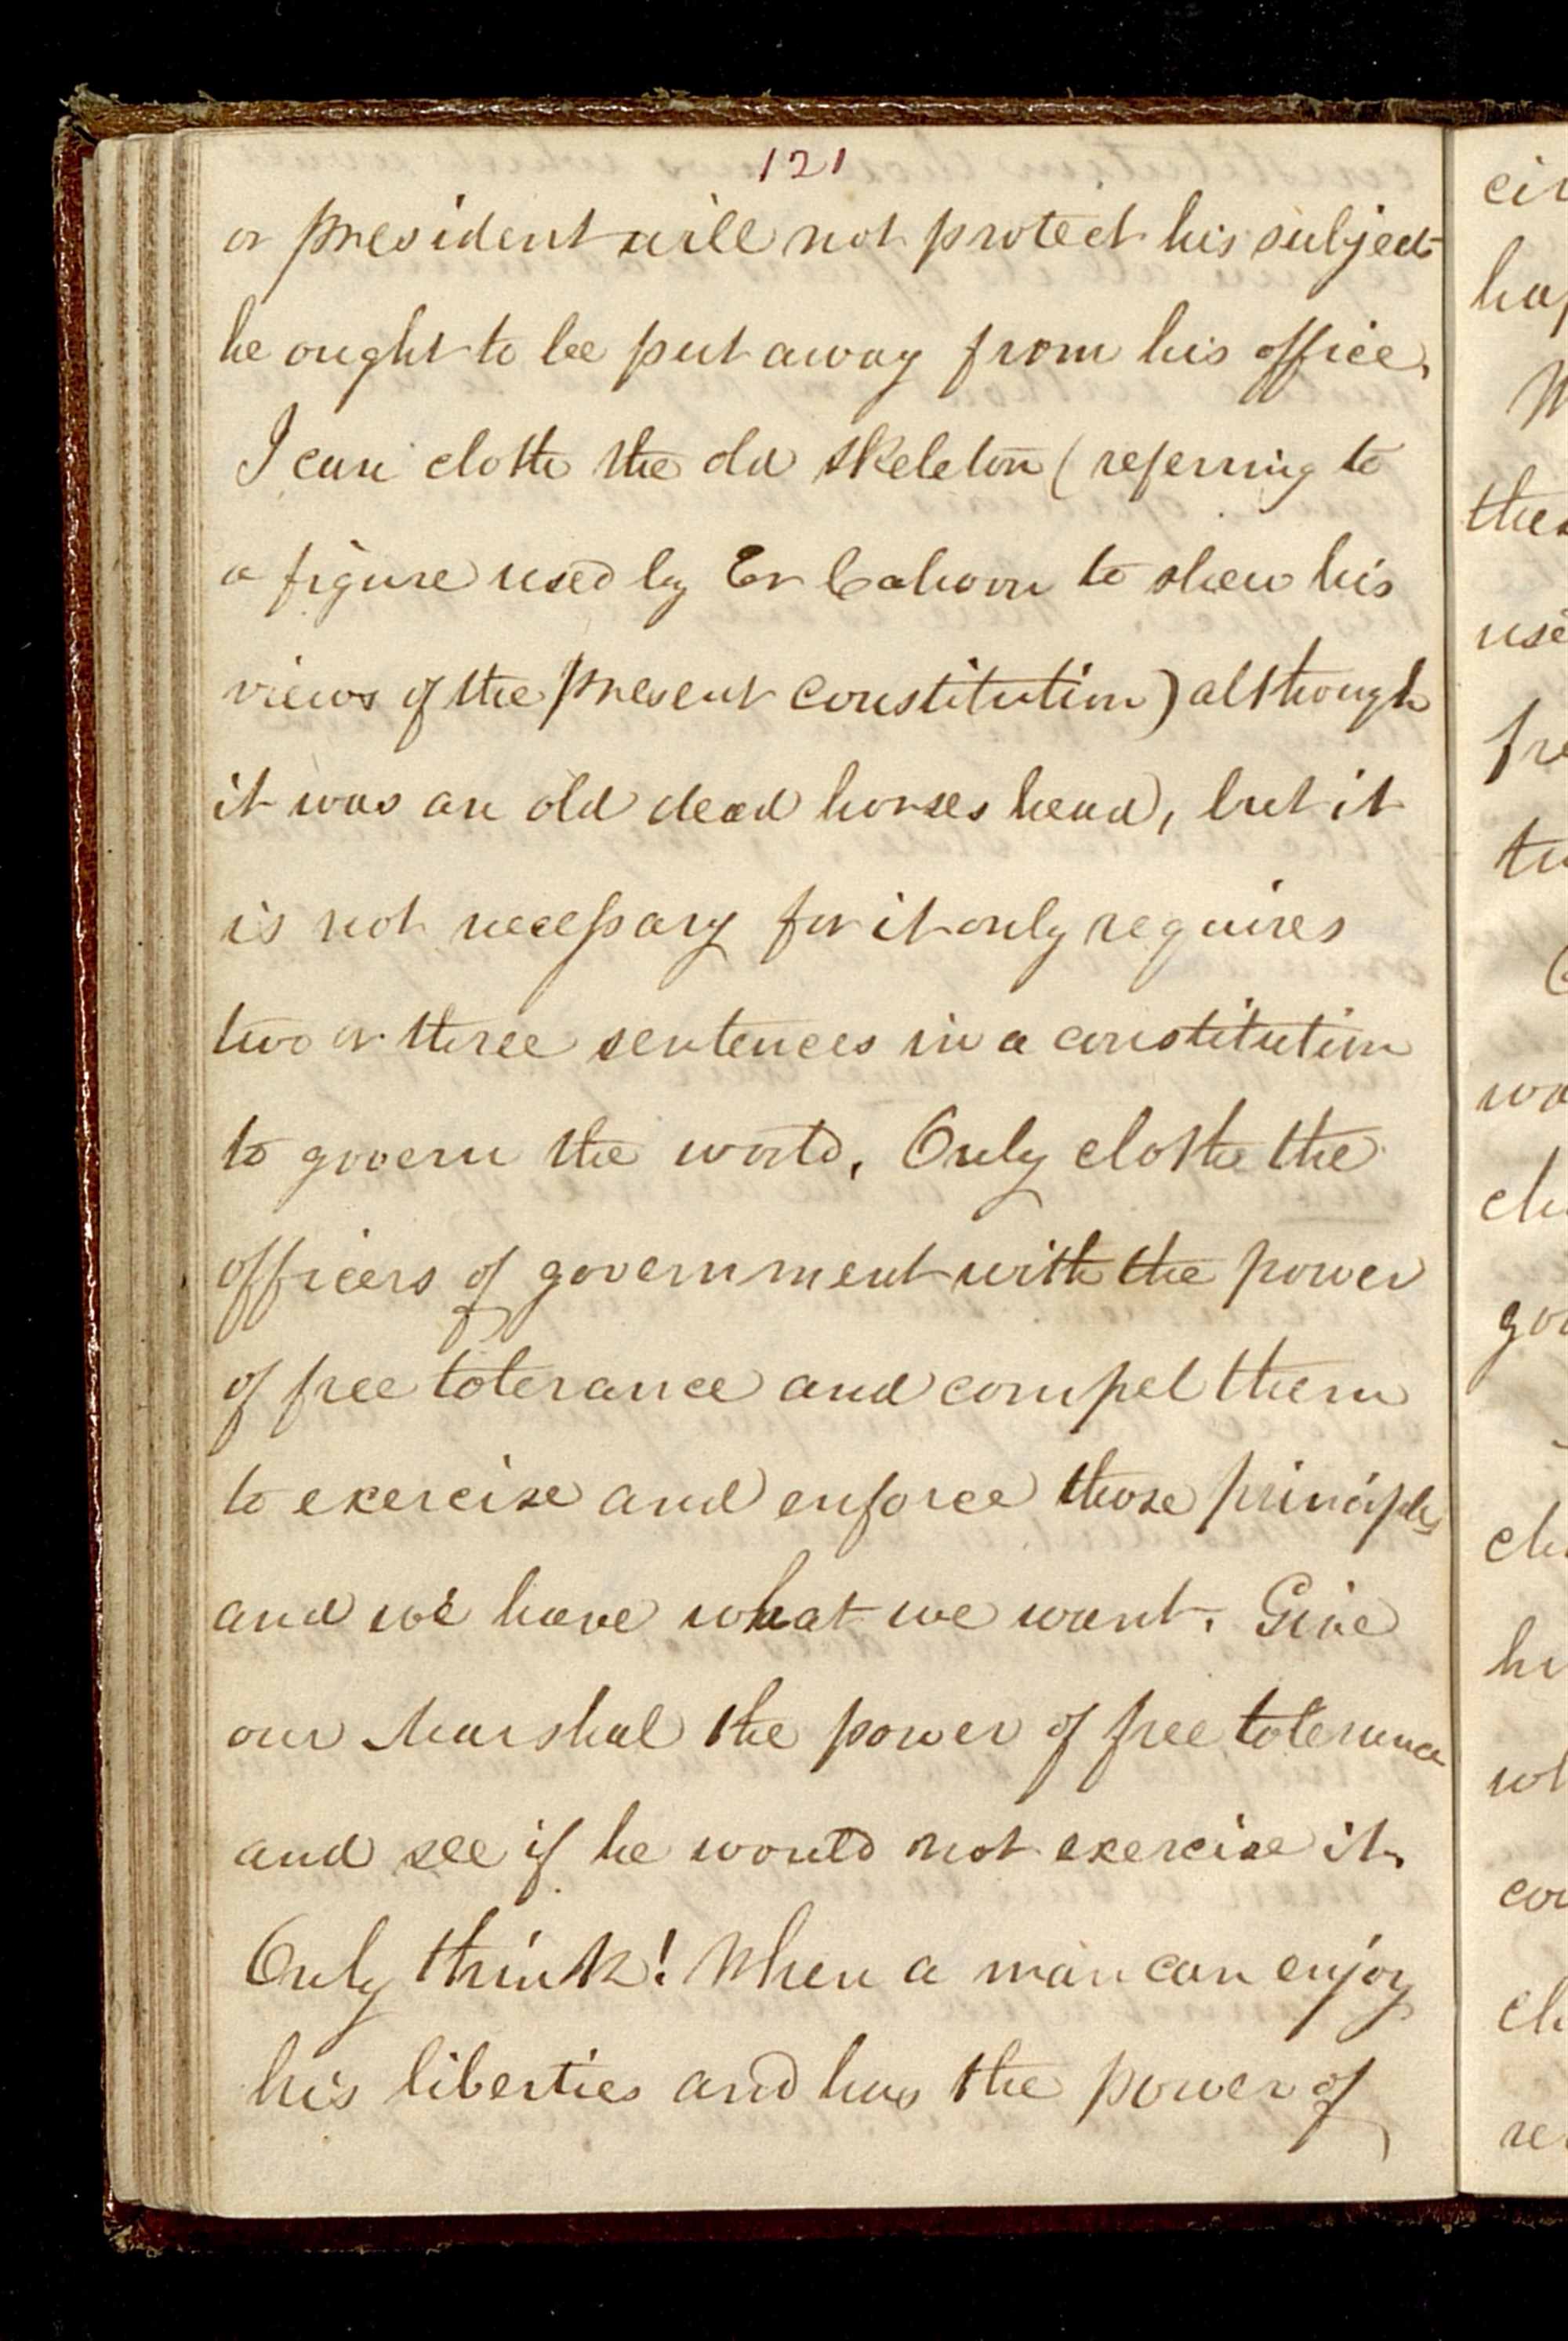 121
or president will not protect his subject
he ought to be put away from his office.
I can cloth the old skeleton (referring to
a figure used by Er Cahoon to shew his
views of the present constitution) although
it was an old dead horses head, but it
is not necessary for it only requires
two or three sentences in a constitution
to govern the world. Only clothe the
officers of government with the power
of free tolerance and compel them
to exercise and enforce those principles
and we have what we want. Give
our Marshal the power of free tolerance
and see if he would not exercise it.
Only think! When a man can enjoy
his liberties and has the power of